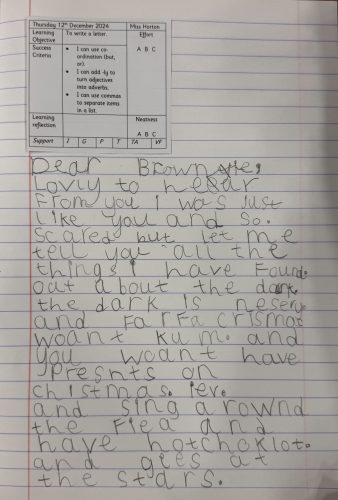 Thursday 12th December 2024 Miss Horton
Learning Objective To write a letter. Effort
Success Criteria
• I can use co-ordination (but, or).
• I can add -ly to turn adjectives into adverbs.
• I can use commas to separate items in a list.
A B C
Learning reflection Neatness
A B C
Support I G P T TA VF
Dear Brown
Lovly to hear
From you I was Just
Like you and so.
Scared but let me
tell you all the
things I have Found.
out about the dark.
the dark is nesery
and Far Fa crismat
woant kum. and
you woant have
Presnts on
christmas. iev.
and sing arownd
the Fiea and
have hotchoklot.
and gies at
the stars.